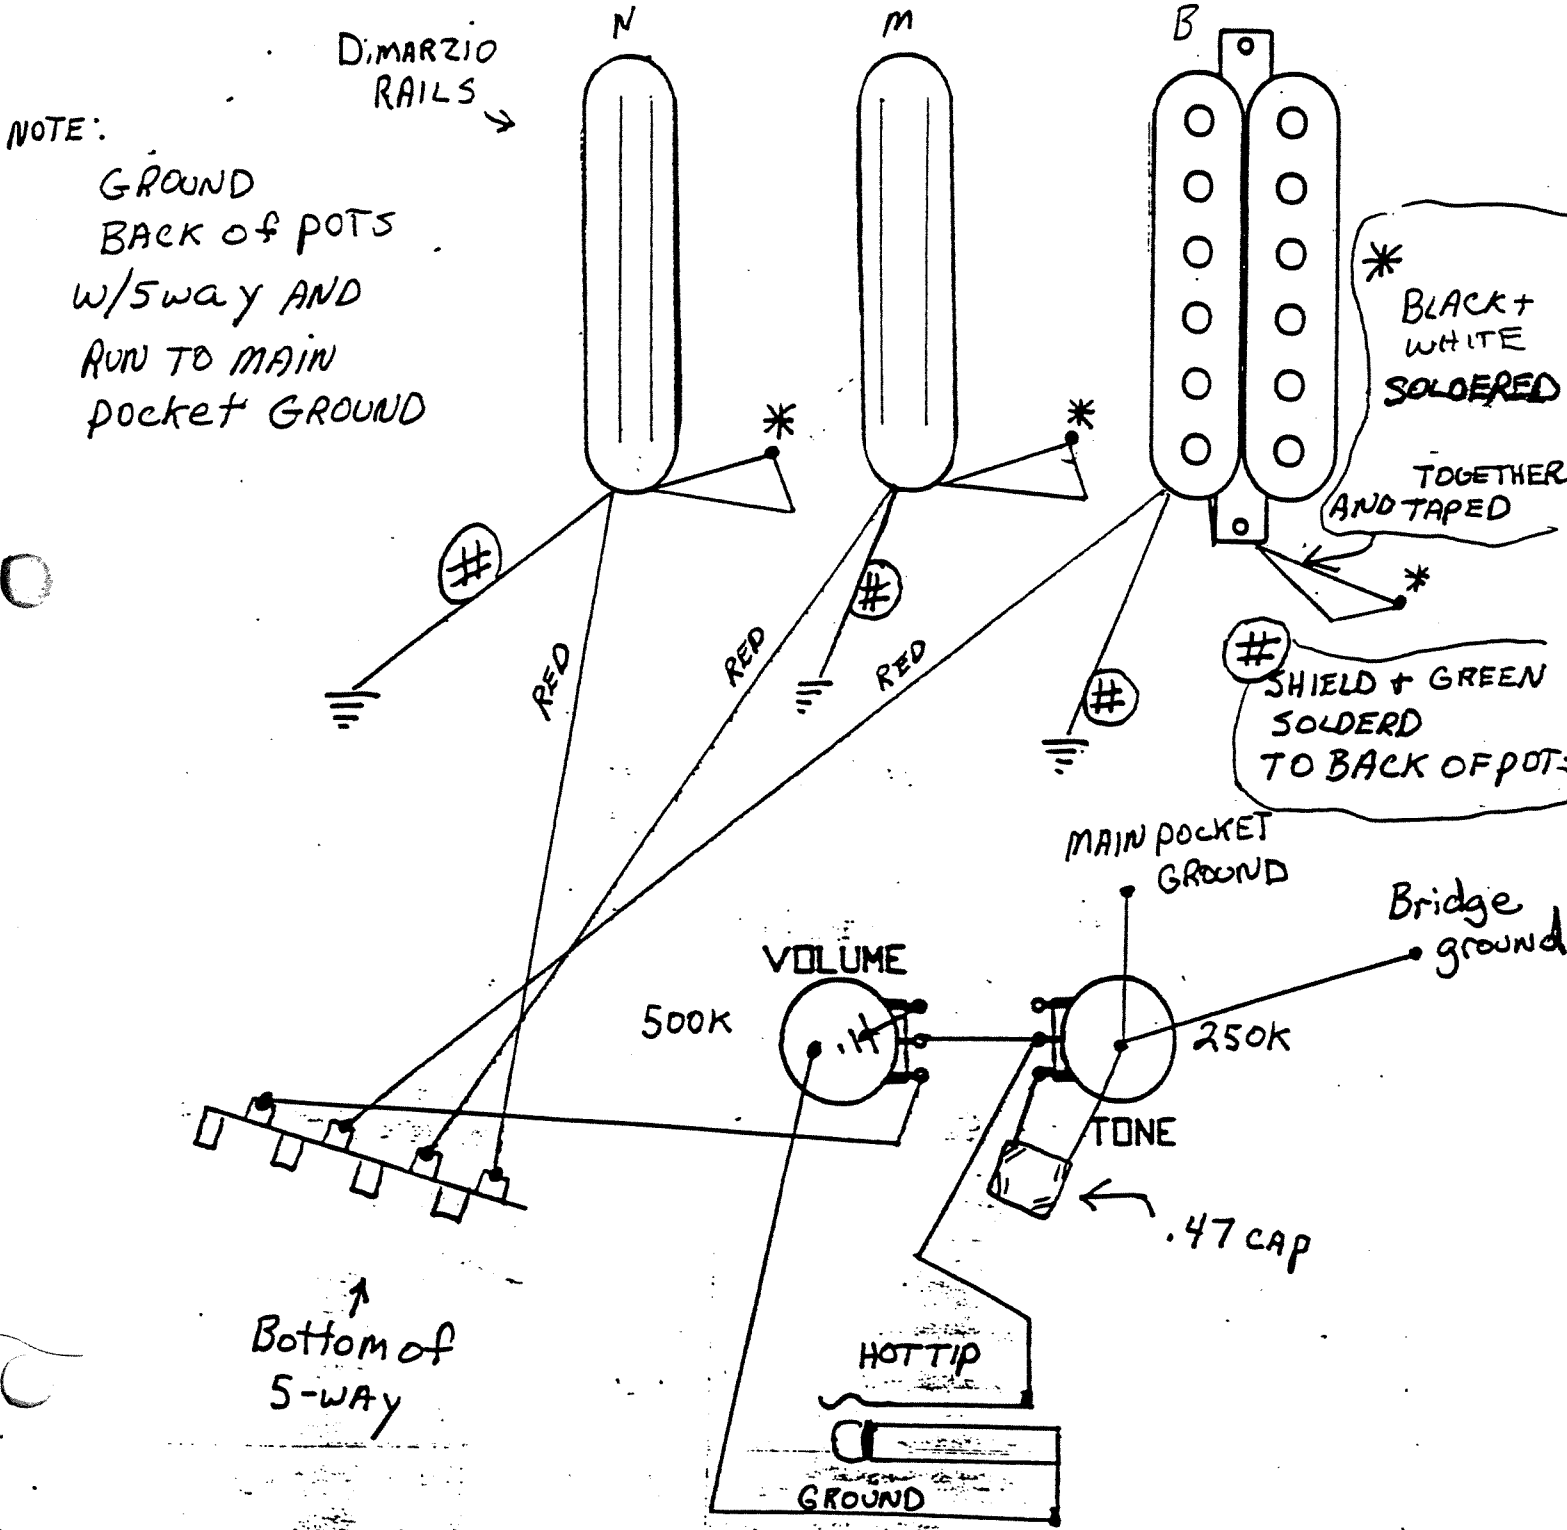 N
M
B
DiMARZIO
RAILS
NOTE:
GROUND
BACK of POTS
W/5way AND
RUN TO MAIN
pocket GROUND
*
*
*
BLACK +
WHITE
SOLDERED
TOGETHER
AND TAPED
*
#
#
#
#
SHIELD + GREEN
SOLDERD
TO BACK OF POTS
RED
RED
RED
MAIN POCKET
GROUND
Bridge
ground
VOLUME
500K
250K
TONE
.47 CAP
Bottom of
5-WAY
HOT TIP
GROUND